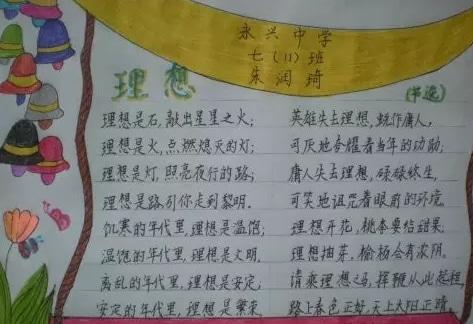 永兴中学
七（11）班
朱润琦
理想
（节选）
理想是石，敲出星星之火；
理想是火，点燃熄灭的灯；
理想是灯，照亮夜行的路；
理想是路，引你走到黎明。
饥寒的年代里，理想是温饱；
温饱的年代里，理想是文明。
离乱的年代里，理想是安定；
安定的年代里，理想是繁荣。
英雄失去理想，蜕作庸人，
可厌地夸耀着当年的功勋；
庸人失去理想，碌碌终生，
可笑地诅咒着眼前的环境。
理想开花，桃李要结甜果；
理想抽芽，榆杨会有浓阴。
请乘理想之马，挥鞭从此起程，
路上春色正好，天上太阳正晴。